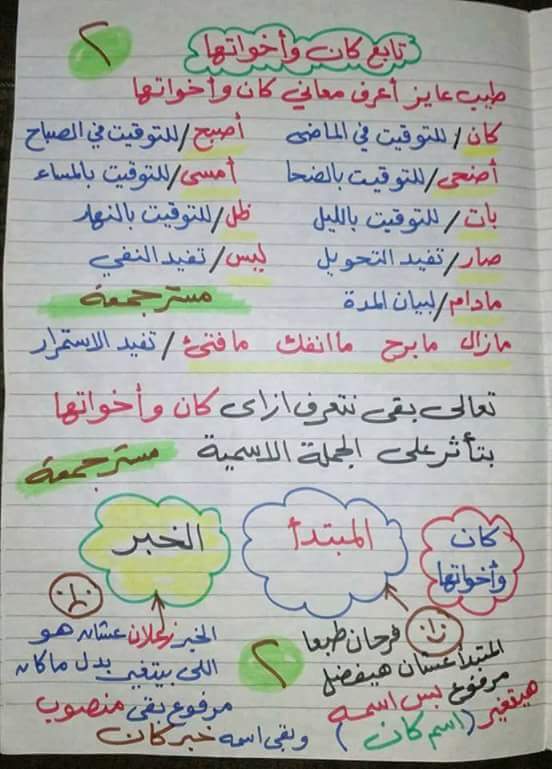 تابع كان وأخواتها
٢
طيب عايز أعرف معاني كان وأخواتها
كان / للتوقيت في الماضى أصبح / للتوقيت في الصباح
أضحى / للتوقيت بالضحا أمسى / للتوقيت بالمساء
بات / للتوقيت بالليل ظل / للتوقيت بالنهار
صار / تفيد التحويل ليس / تفيد النفي
مادام / لبيان المدة مسترجمعة
مازال مابرح ماانفك مافتئ / تفيد الاستمرار
تعالى بقى نتعرف ازاى كان وأخواتها
بتأثر على الجملة الاسمية مسترجمعة
كان وأخواتها
المبتدأ
الخبر
فرحان طبعا
المبتدأ عشان هيفضل
مرفوع بس اسمه
هيتغير (اسم كان)
٢
الخبر زعلان عشان هو
اللى بيتغير بدل ماكان
مرفوع بقى منصوب
وبقى اسمه خبر كان